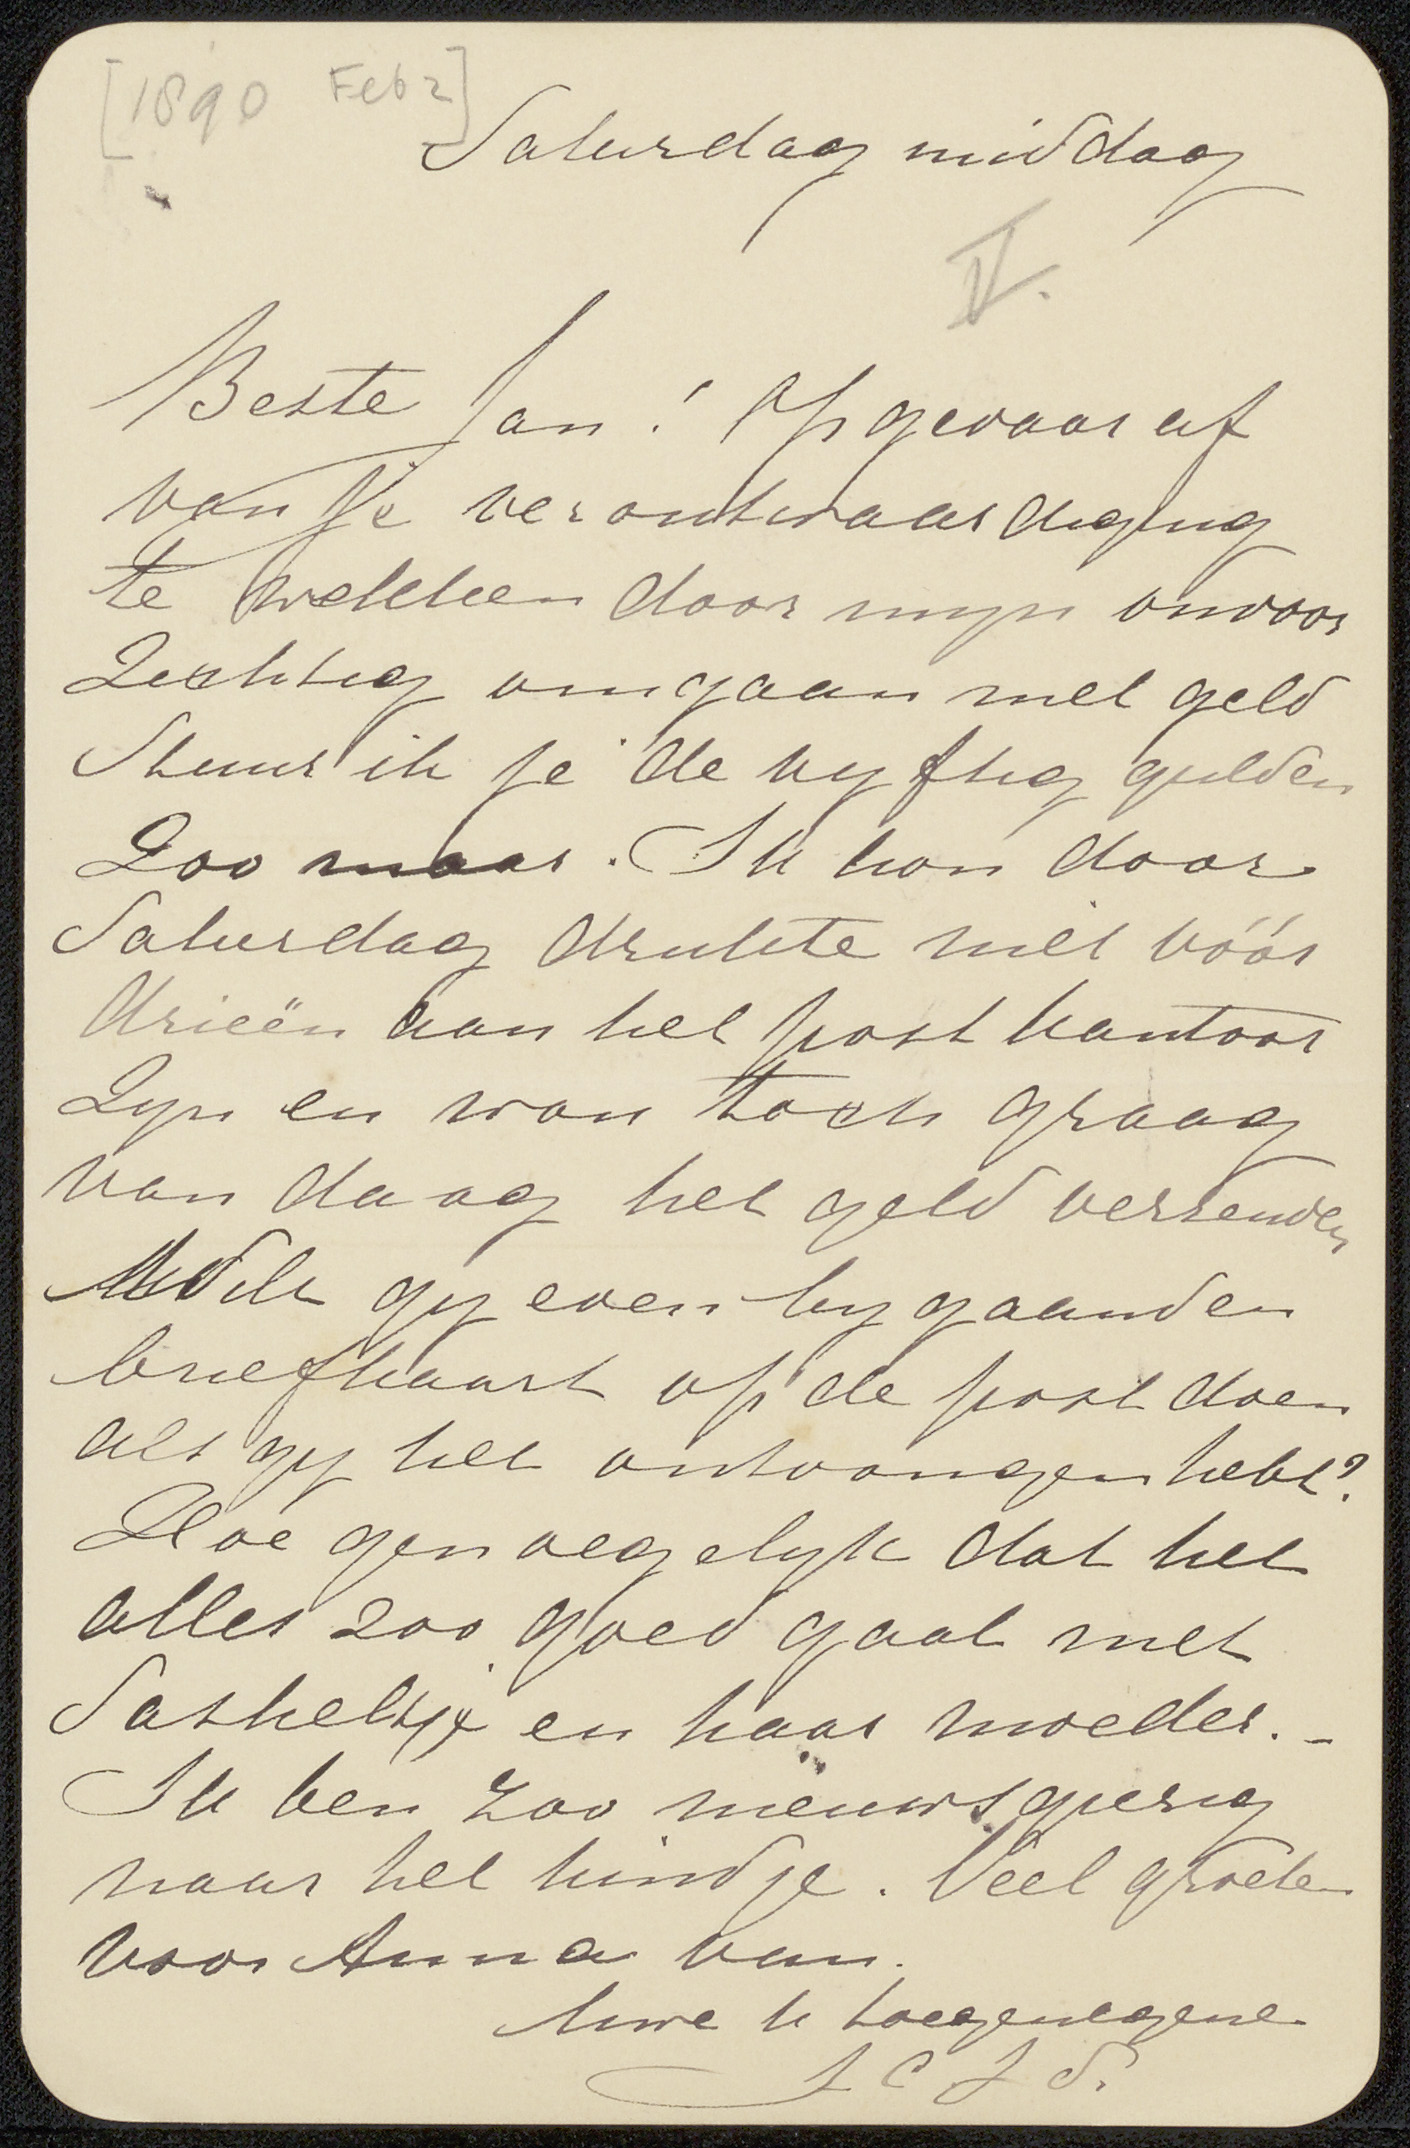 [1890 Feb 2]
Saturdag middag
IV.
Beste Jan! Op gevaar af
van je verontwaardiging
te wekken door mijn onvoor
zichtig omgaan met geld
Stuur ik je de vijftig gulden
Zoo maar. Ik kon door
Saturdag drukte niet vóór
drieën aan het post kantoor
Zijn en wou toch graag
van daag het geld verzenden
Wilt gij even bijgaanden
briefkaart op de post doen
als gij het ontvangen hebt?
Hoe genoegelijk dat het
alles zoo goed gaat met
Saskeltje en haar moeder. -
Ik ben zoo nieuwsgierig
naar het kindje. Veel groeten
voor Anna van.
Uwe U toegenegene